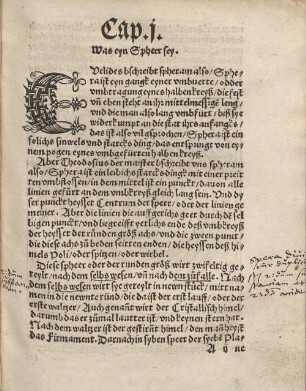 Cap.j.
Was eyn Spheer sey.
EVclides bschreibt spheram also/ Sphe-
ra ist eyn gangk eyner vmbuerte/ odder
vmbtragung eynes halben kreyß/ die fest
vñ eben steht an ihr mittelmessige leng/
vnd die man also lang vmbfürt/ biß sye
widerkumpt an die stat ihrs anfangs/
das ist also vil gsprochen/ Sphera ist ein
solichs sinwels vnd starcks ding/ das entspringt von ey-
nem bogen eynes vmbgefürten halben kreyß.
Aber Theodosius der maister bschreibt vns spheram
also/ Sphera ist ein leibichs starcks dingk mit einer preit-
ten vmbfassen/ in dem mittel ist ein punckt/ dauon alle
linien gefürt an den vmbkreyß gleich lang sein. Vnd dy-
ser punckt heysset Centrum der speer/ oder der linien ge-
meiner. Aber die linien die auffgerichs geet durch den sel-
bigen punckt/ vnd begreifft yetlichs end den vmbkreyß
der heysset der runden groß achs/ oder die zwen punct
die diese achs zů beden seitten enden/ die heyssen deß hi-
mels Poli/ oder spitzen/ oder wirbel.
Diese spheer oder der runden größ wirt zwifeltig ge-
teylt/ nach dem selbs wesen/ vñ nach dem zůfalle. Nach
dem selbs wesen wirt sye geteylt in newn stück/ mit na-
men in die newnte ründ/ die da ist der erst lauff/ oder der
erst walzer/ Auch genant wirt der Cristallisch himel/
darumb das er zůmal lautter ist/ vnd keynen stern hat.
Nach dem walzer ist der gestirnt himel/ den man heyst
das Firmament. Darnach in syben speer der sybē Pla-
A ij ne